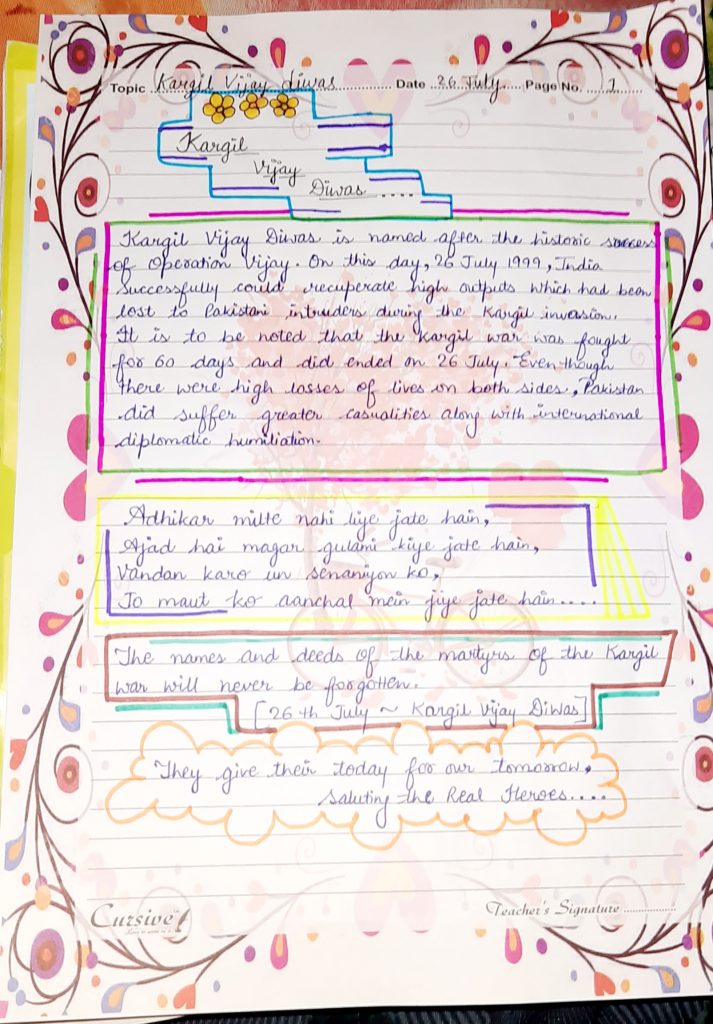 Topic Kargil Vijay diwas Date 26 July Page No. 1
Kargil
Vijay
Diwas ....
Kargil Vijay Diwas is named after the historic success
of Operation Vijay. On this day, 26 July 1999, India
successfully could recuperate high outputs which had been
lost to Pakistani intruders during the Kargil invasion.
It is to be noted that the Kargil war was fought
for 60 days and did ended on 26 July. Even though
there were high losses of lives on both sides, Pakistan
did suffer greater casualities along with international
diplomatic humiliation.
Adhikar milte nahi liye jate hain,
Ajad hai magar gulami kiye jate hain,
Vandan karo un senaniyon ko,
Jo maut ko aanchal mein jiye jate hain....
The names and deeds of the martyrs of the Kargil
war will never be forgotten.
[26th July ~ Kargil Vijay Diwas]
They give their today for our tomorrow,
saluting the Real Heroes....
Cursive
Teacher's Signature